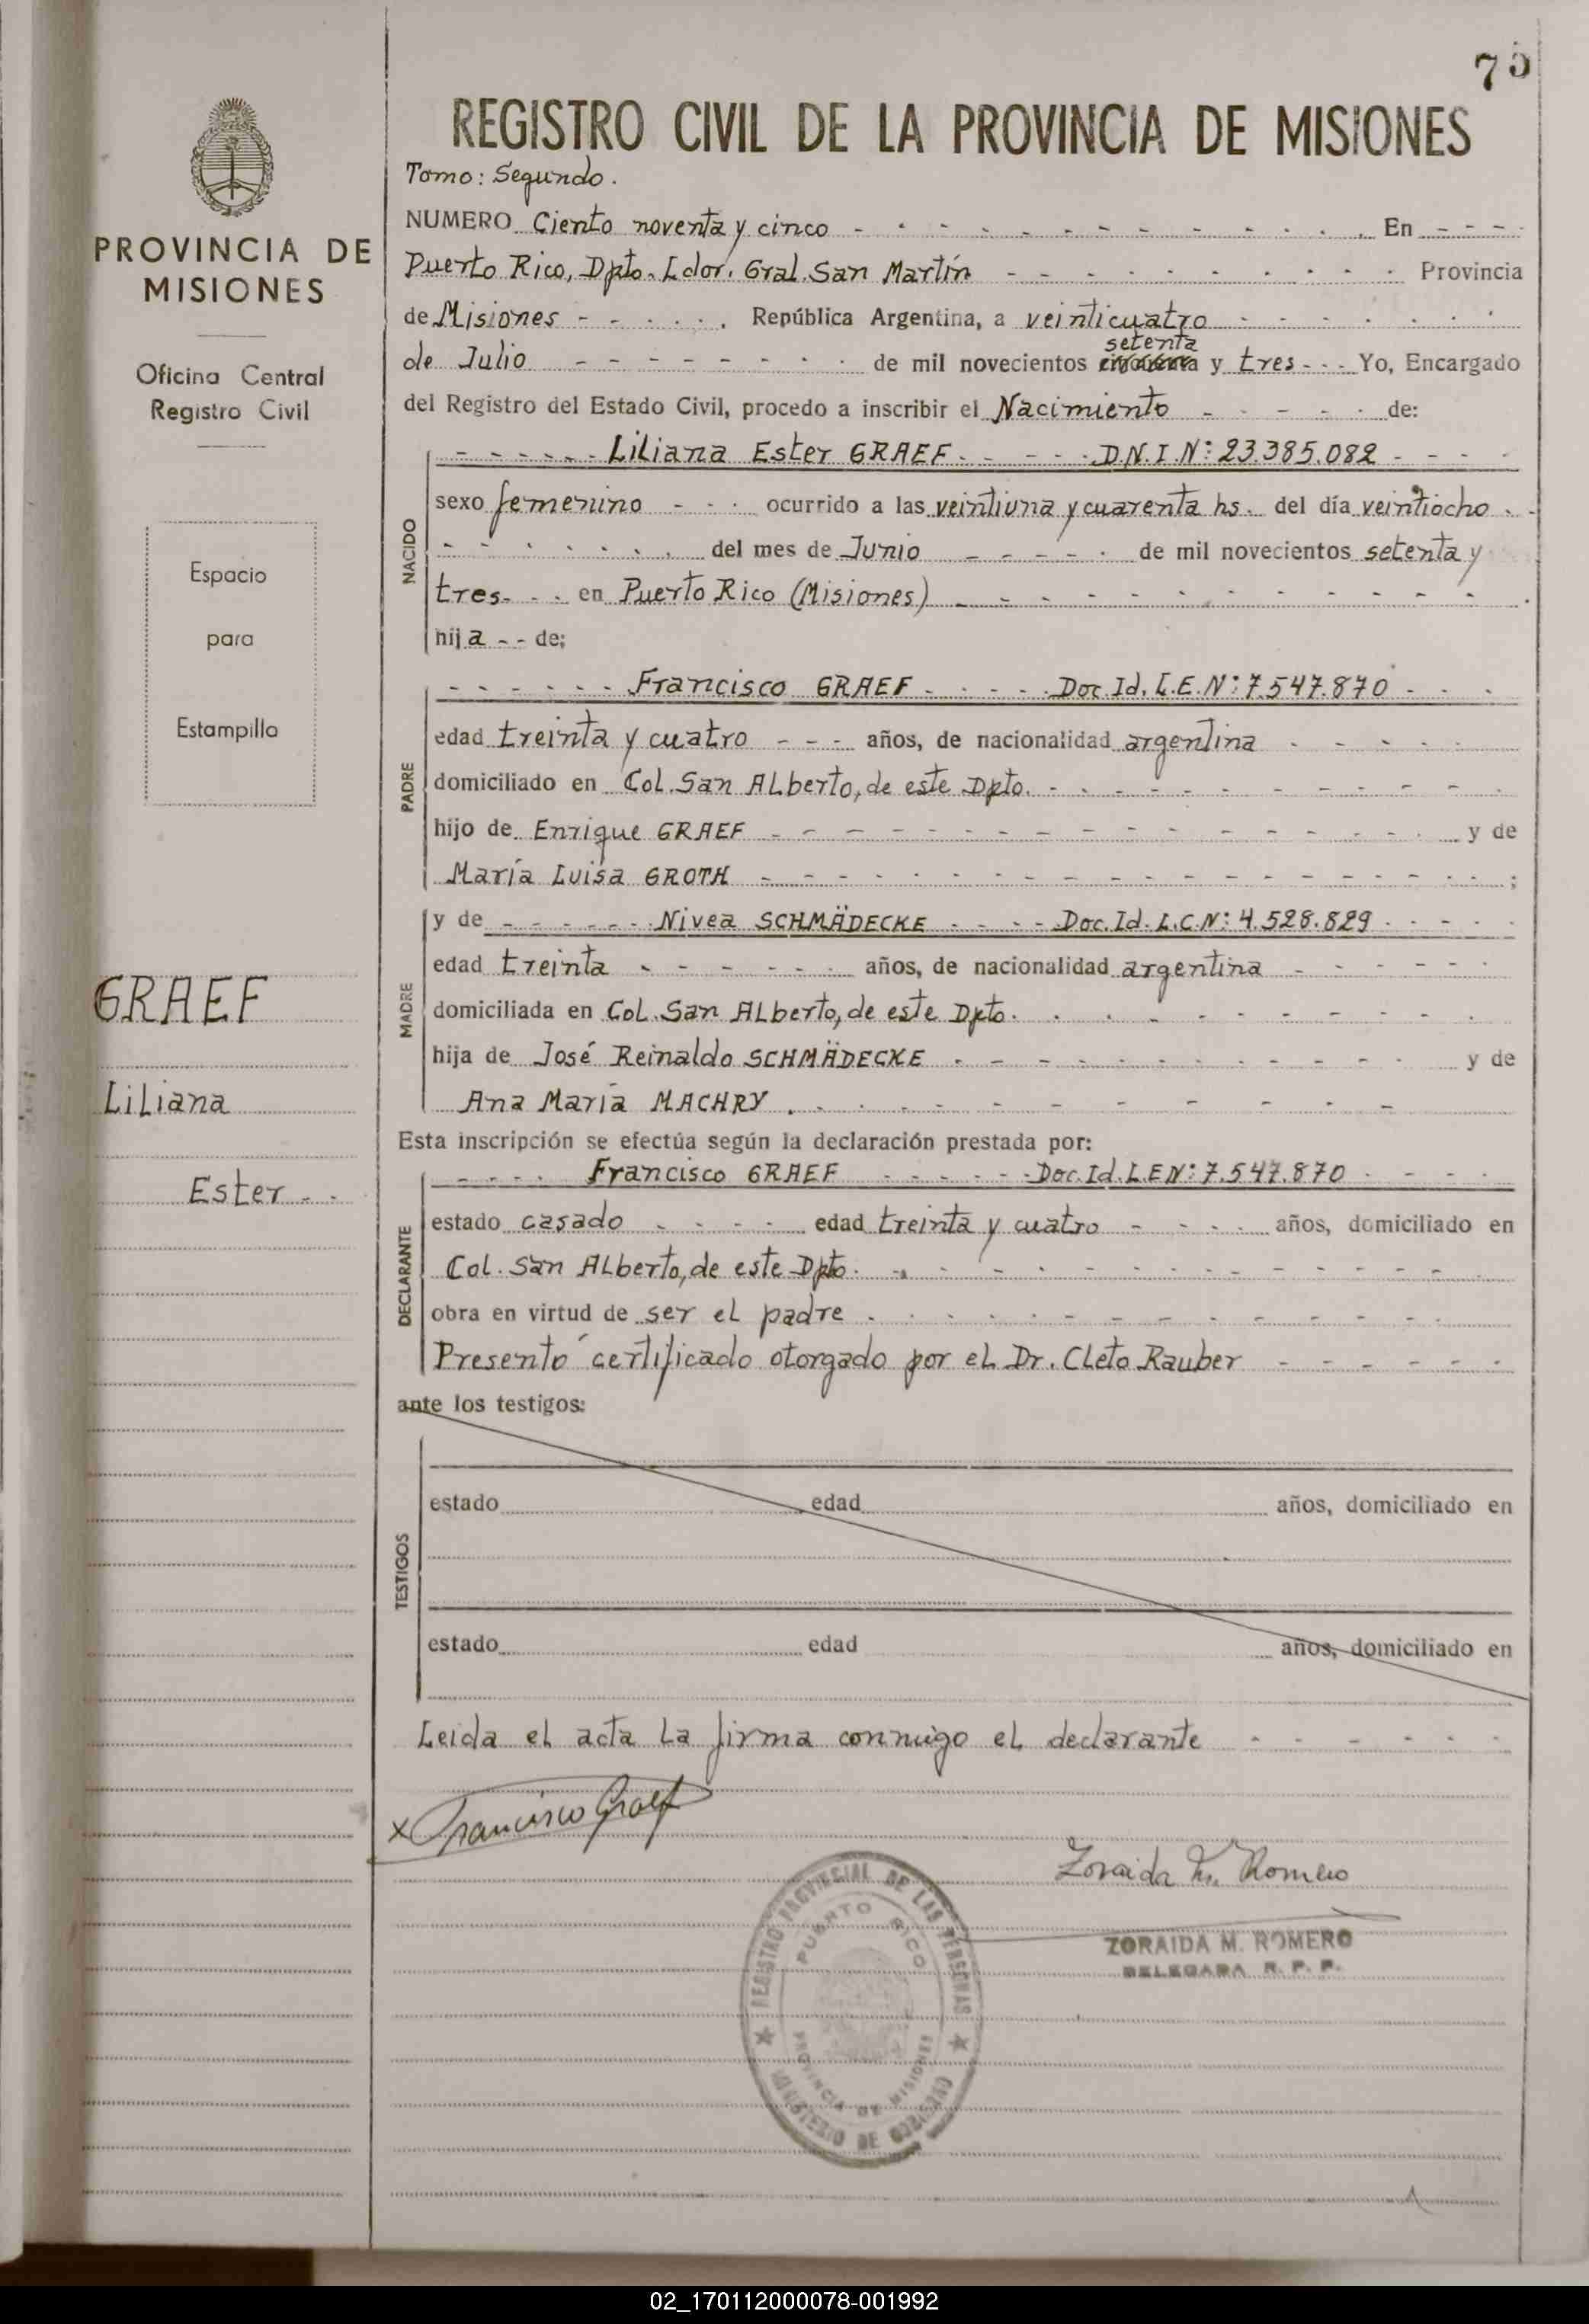 75
REGISTRO CIVIL DE LA PROVINCIA DE MISIONES
Tomo: Segundo.
NUMERO Ciento noventa y cinco - - - En - - -
Puerto Rico, Dpto. Ldor. Gral. San Martín - - - Provincia
de Misiones - - - República Argentina, a veinticuatro - - -
setenta
de Julio - - - de mil novecientos y tres - - - Yo, Encargado
del Registro del Estado Civil, procedo a inscribir el Nacimiento - - - de:
NACIDO
- - - Liliana Ester GRAEF - - - D.N.I.N: 23.385.082 - - -
sexo femenino - - - ocurrido a las veintiuna y cuarenta hs. del día veintiocho - -
- - - del mes de Junio - - - de mil novecientos setenta y
tres - - - en Puerto Rico (Misiones) - - -
hija - - de;
PADRE
- - - Francisco GRAEF - - - Doc. Id. L.E.N: 7.547.870 - - -
edad treinta y cuatro - - - años, de nacionalidad argentina - - -
domiciliado en Col. San Alberto, de este Dpto. - - -
hijo de Enrique GRAEF - - - y de
María Luisa GROTH - - - ;
MADRE
y de - - - Nivea SCHMÄDECKE - - - Doc. Id. L.C.N: 4.528.829 - - -
edad treinta - - - años, de nacionalidad argentina - - -
domiciliada en Col. San Alberto, de este Dpto. - - -
hija de José Reinaldo SCHMÄDECKE - - - y de
Ana María MACHRY. - - -
Esta inscripción se efectúa según la declaración prestada por:
DECLARANTE
- - - Francisco GRAEF - - - Doc. Id. L.E.N: 7.547.870 - - -
estado casado - - - edad treinta y cuatro - - - años, domiciliado en
Col. San Alberto, de este Dpto. - - -
obra en virtud de ser el padre - - -
Presentó certificado otorgado por el Dr. Cleto Rauber - - -
ante los testigos:
TESTIGOS
estado edad años, domiciliado en
estado edad años, domiciliado en
Leida el acta la firma conmigo el declarante - - -
x Francisco Graef
Zoraida M. Romero
ZORAIDA M. ROMERO
DELEGADA R. P. P.
REGISTRO PROVINCIAL DE LAS PERSONAS
PUERTO RICO
PROVINCIA DE MISIONES
MINISTERIO DE GOBIERNO
PROVINCIA DE
MISIONES
Oficina Central
Registro Civil
Espacio
para
Estampilla
GRAEF
Liliana
Ester - -
02_170112000078-001992